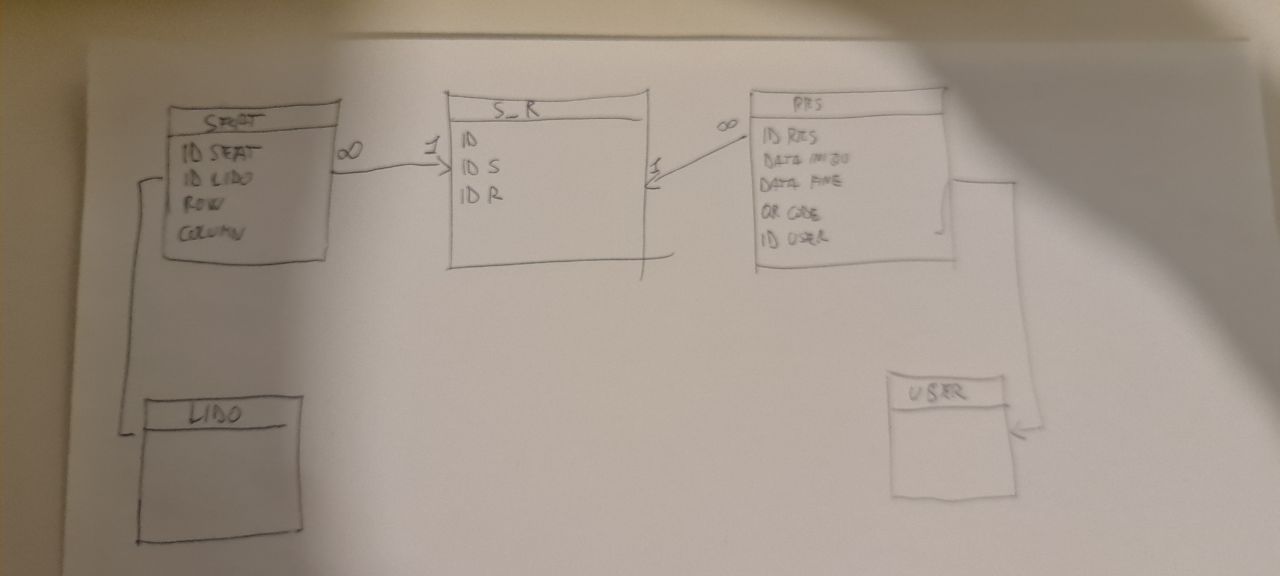 SEAT
ID SEAT
ID LIDO
ROW
COLUMN
∞
1
S_R
ID
ID S
ID R
∞
1
RES
ID RES
DATA INIZIO
DATA FINE
QR CODE
ID USER
LIDO
USER